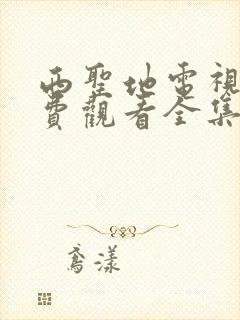 西聖地電視
費觀看全集
鳶漾